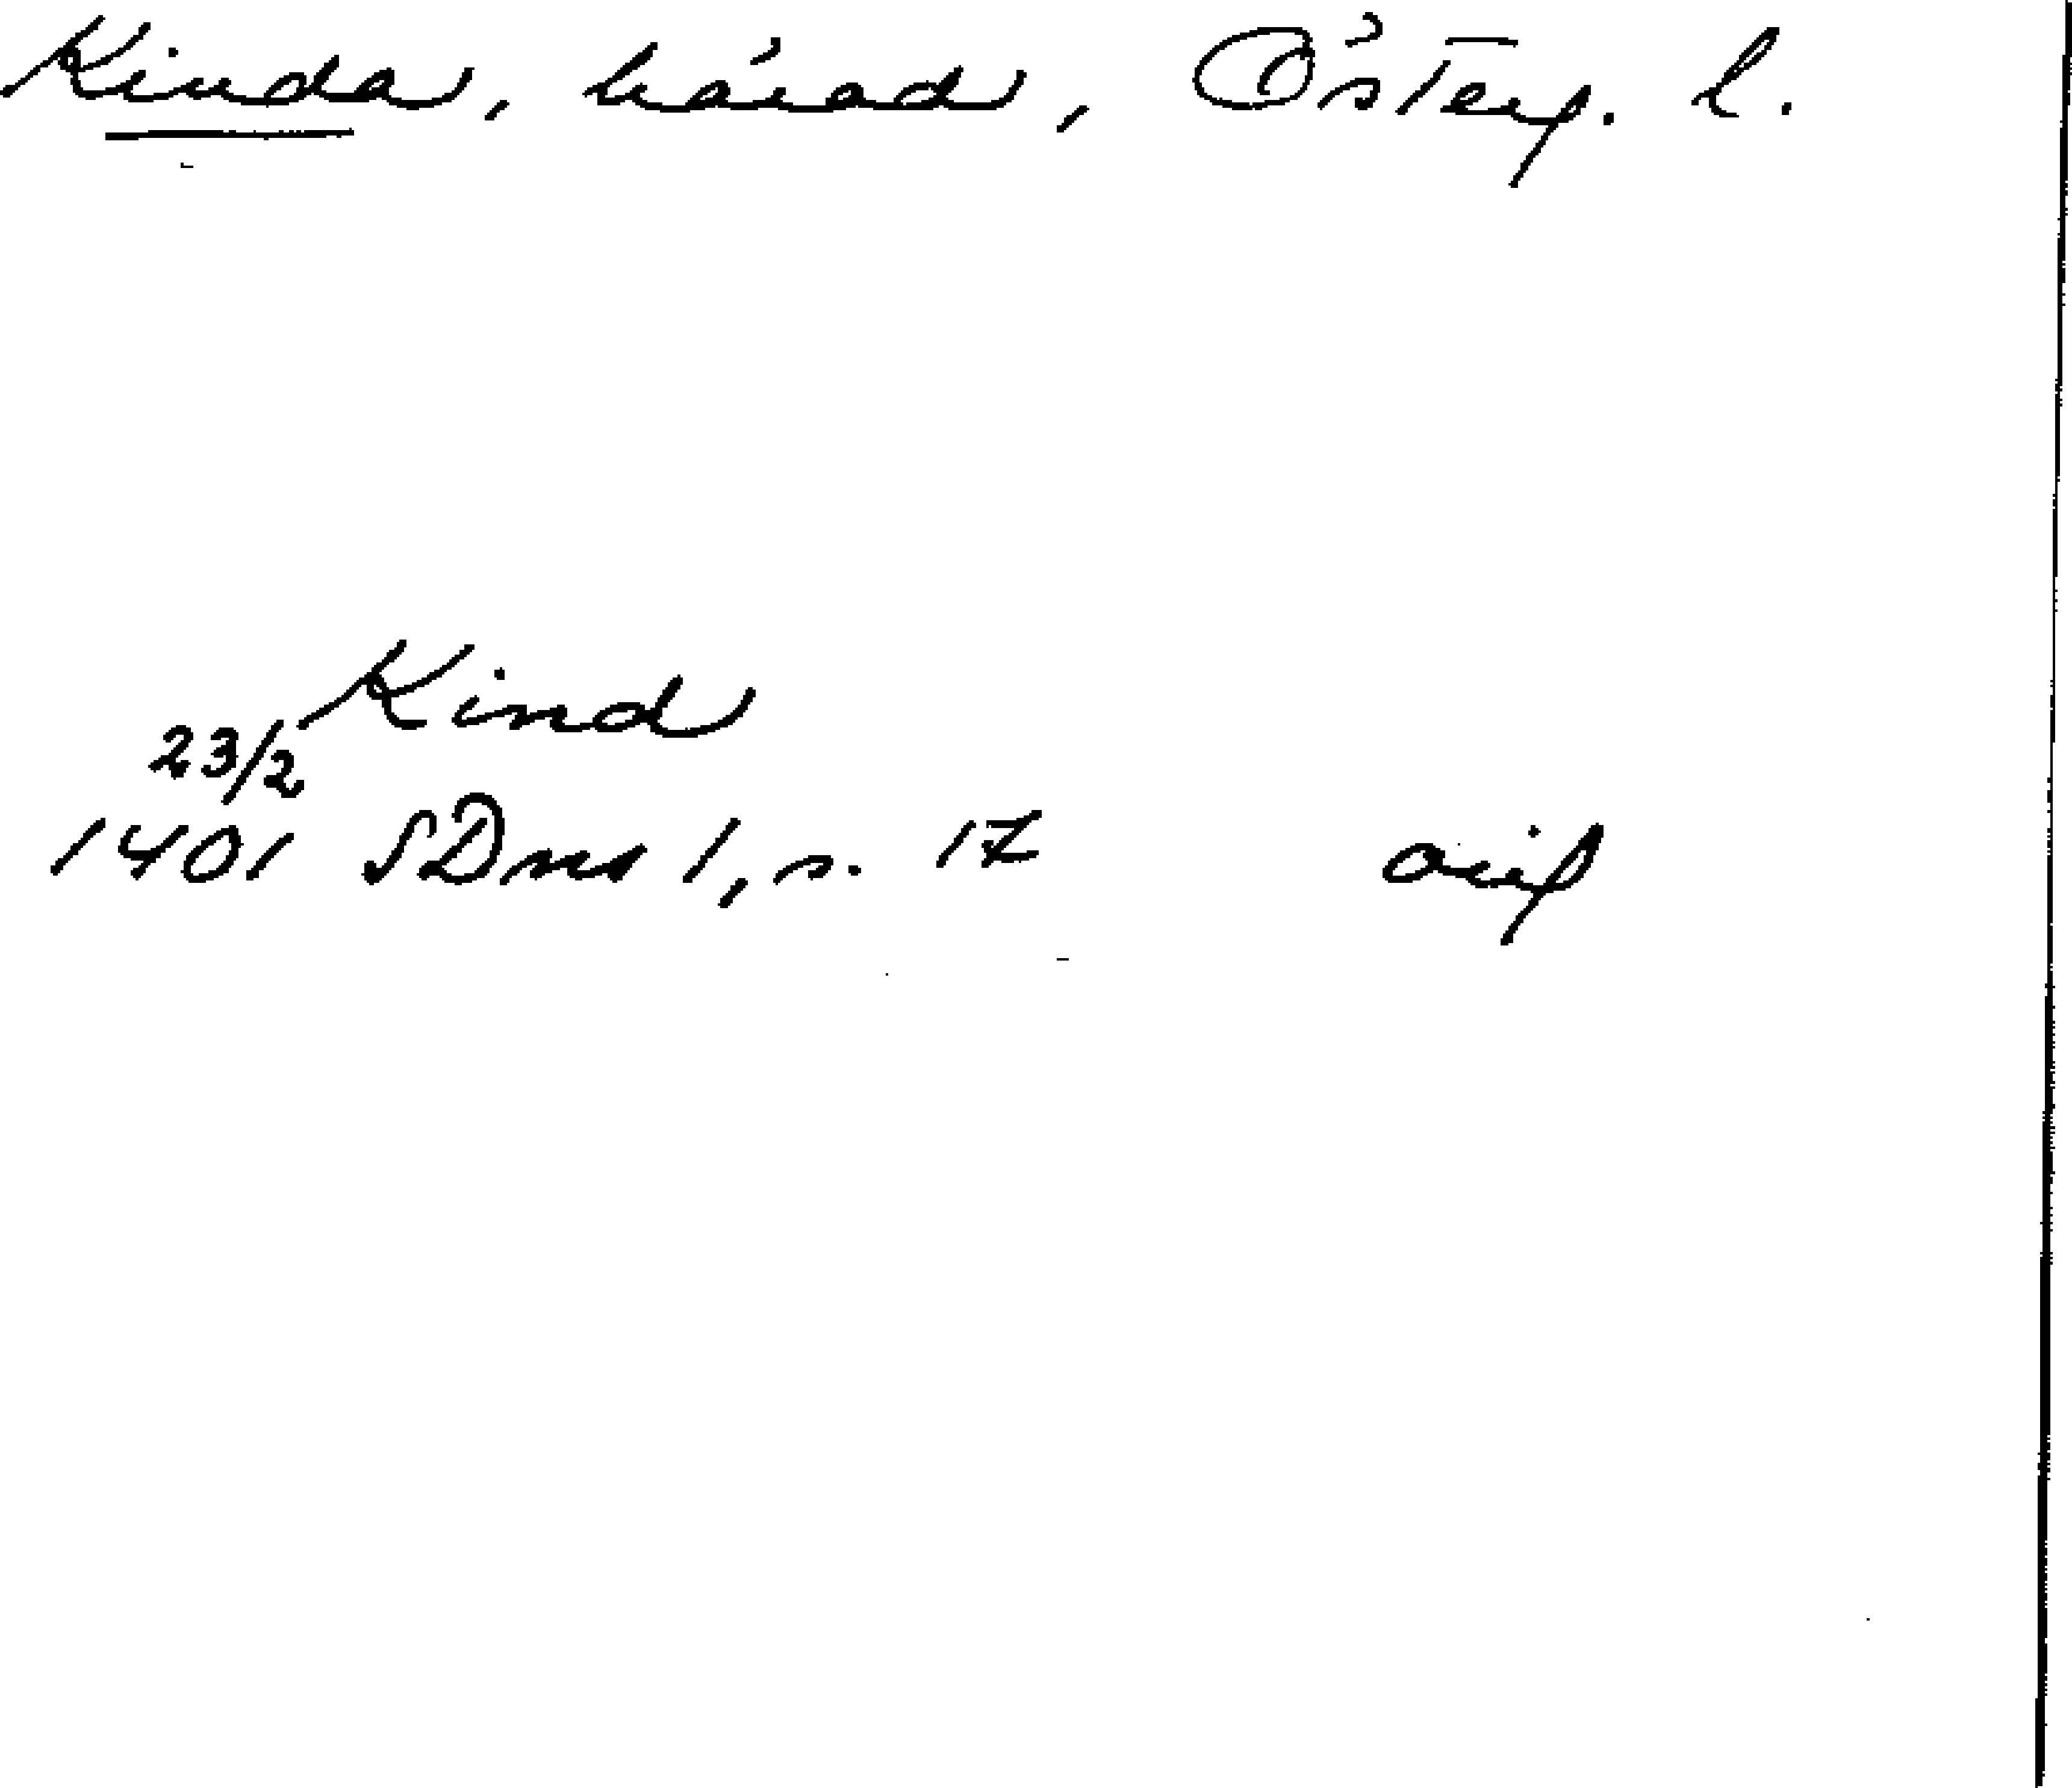 Kinda, härad, Österg. l.
Kind
23/2
1401 SDns 1, s. 17 orig